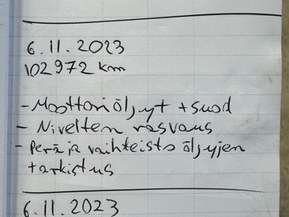 6.11.2023
102972 km
- Moottoriöljyt + suod
- Nivelten rasvaus
- Perä ja vaihteisto öljyjen
tarkistus
6.11.2023